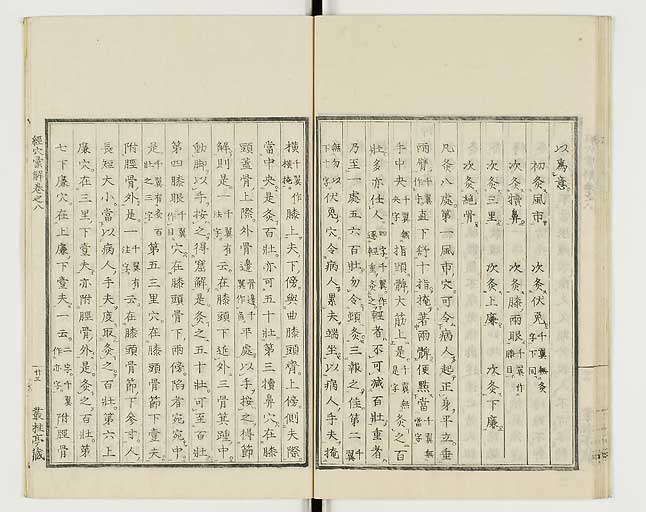 以爲意
初灸風市 次灸伏兎千翼無灸字下同
次灸犢鼻 次灸膝兩眼千翼作膝目
次灸三里 次灸上廉 次灸下廉
次灸絶骨
凡灸八處第一風市穴可令病人起正身平立垂
兩臂千翼作手直下舒十指掩著兩髀便㸃當千翼無當字
手中央千翼無央字指頭髀大筋上是千翼無是字灸之百
壯多亦任人輕者不可减百壯重者
乃至一處五六百壯勿令頓灸三報之佳第二千翼
下十字無勿以伏兎穴令病人累夫端坐以病人手夫掩
横千翼横掩作膝上夫下傍與曲膝頭齊上傍側夫際
當中央是灸百壯亦可五十壯第三犢鼻穴在膝
頭蓋骨上際外骨邊千翼作處平處以手按之得節
解則是一注千翼有云字在膝頭下近外三骨箕踵中
動脚以手按之得窟解是灸之五十壯可至百壯
第四膝眼千翼作目穴在膝頭骨下兩傍陷者宛宛中
是千翼有灸百壯之三字第五三里穴在膝頭骨節下壹夫
附脛骨外是一注千翼有云字在膝頭骨節下參寸人
長短大小當以病人手夫度取灸之百壯第六上
廉穴在三里下壹夫亦附脛骨外是灸之百壯第
七下廉穴在上廉下壹夫一云千翼二字作亦字附脛骨
經穴彙解卷之八
廿三
叢桂亭藏